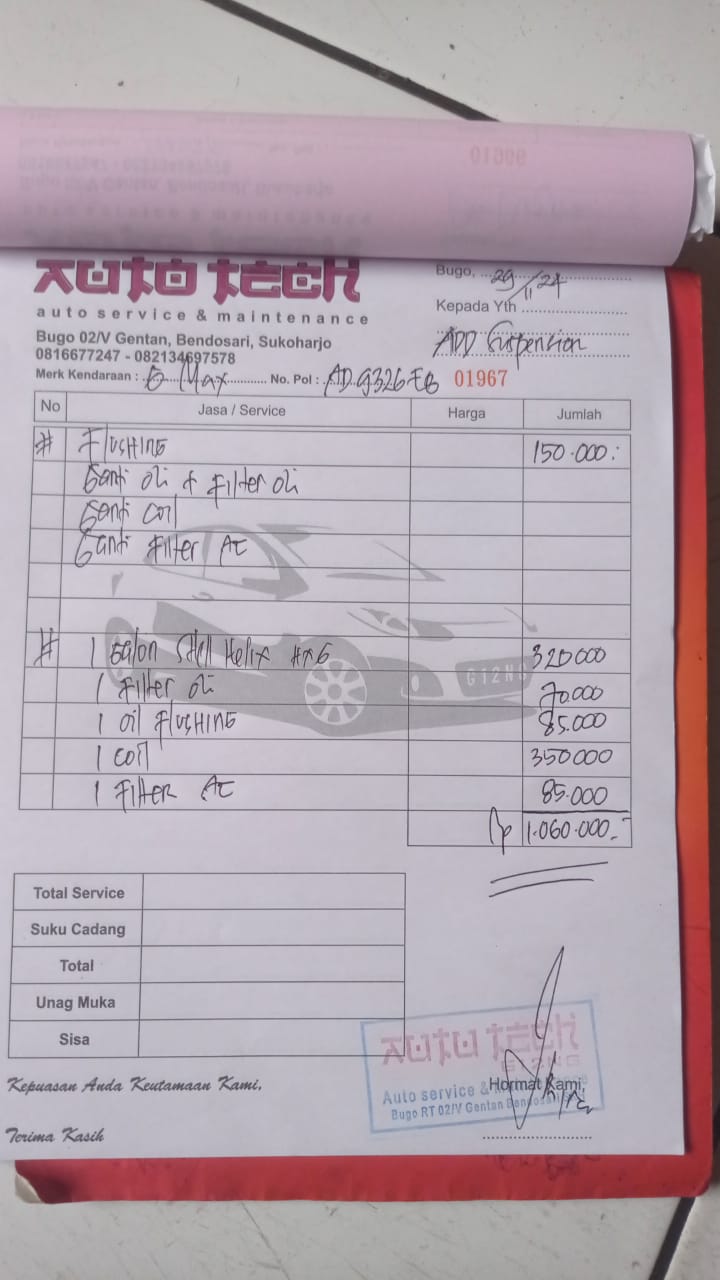 01966
AUTO TECH
auto service & maintenance
Bugo 02/V Gentan, Bendosari, Sukoharjo
0816677247 - 082134697578
Bugo, 29/11/24
Kepada Yth
ADD Suspension
Merk Kendaraan : G Max No. Pol : AD 9326 EB 01967
No Jasa / Service Harga Jumlah
# Flushing 150.000:
Ganti Oli + Filter Oli
Ganti Coil
Ganti Filter AC
# 1 Galon Shell Helix HX6 320000
1 Filter Oli 70.000
1 Oil Flushing 85.000
1 Coil 350000
1 Filter AC 85.000
Rp 1.060.000.-
G12NG
Total Service
Suku Cadang
Total
Unag Muka
Sisa
Kepuasan Anda Keutamaan Kami,
Terima Kasih
AUTO TECH
G12NG
Auto service &
Bugo RT 02/V Gentan Bendosari
Hormat Kami,